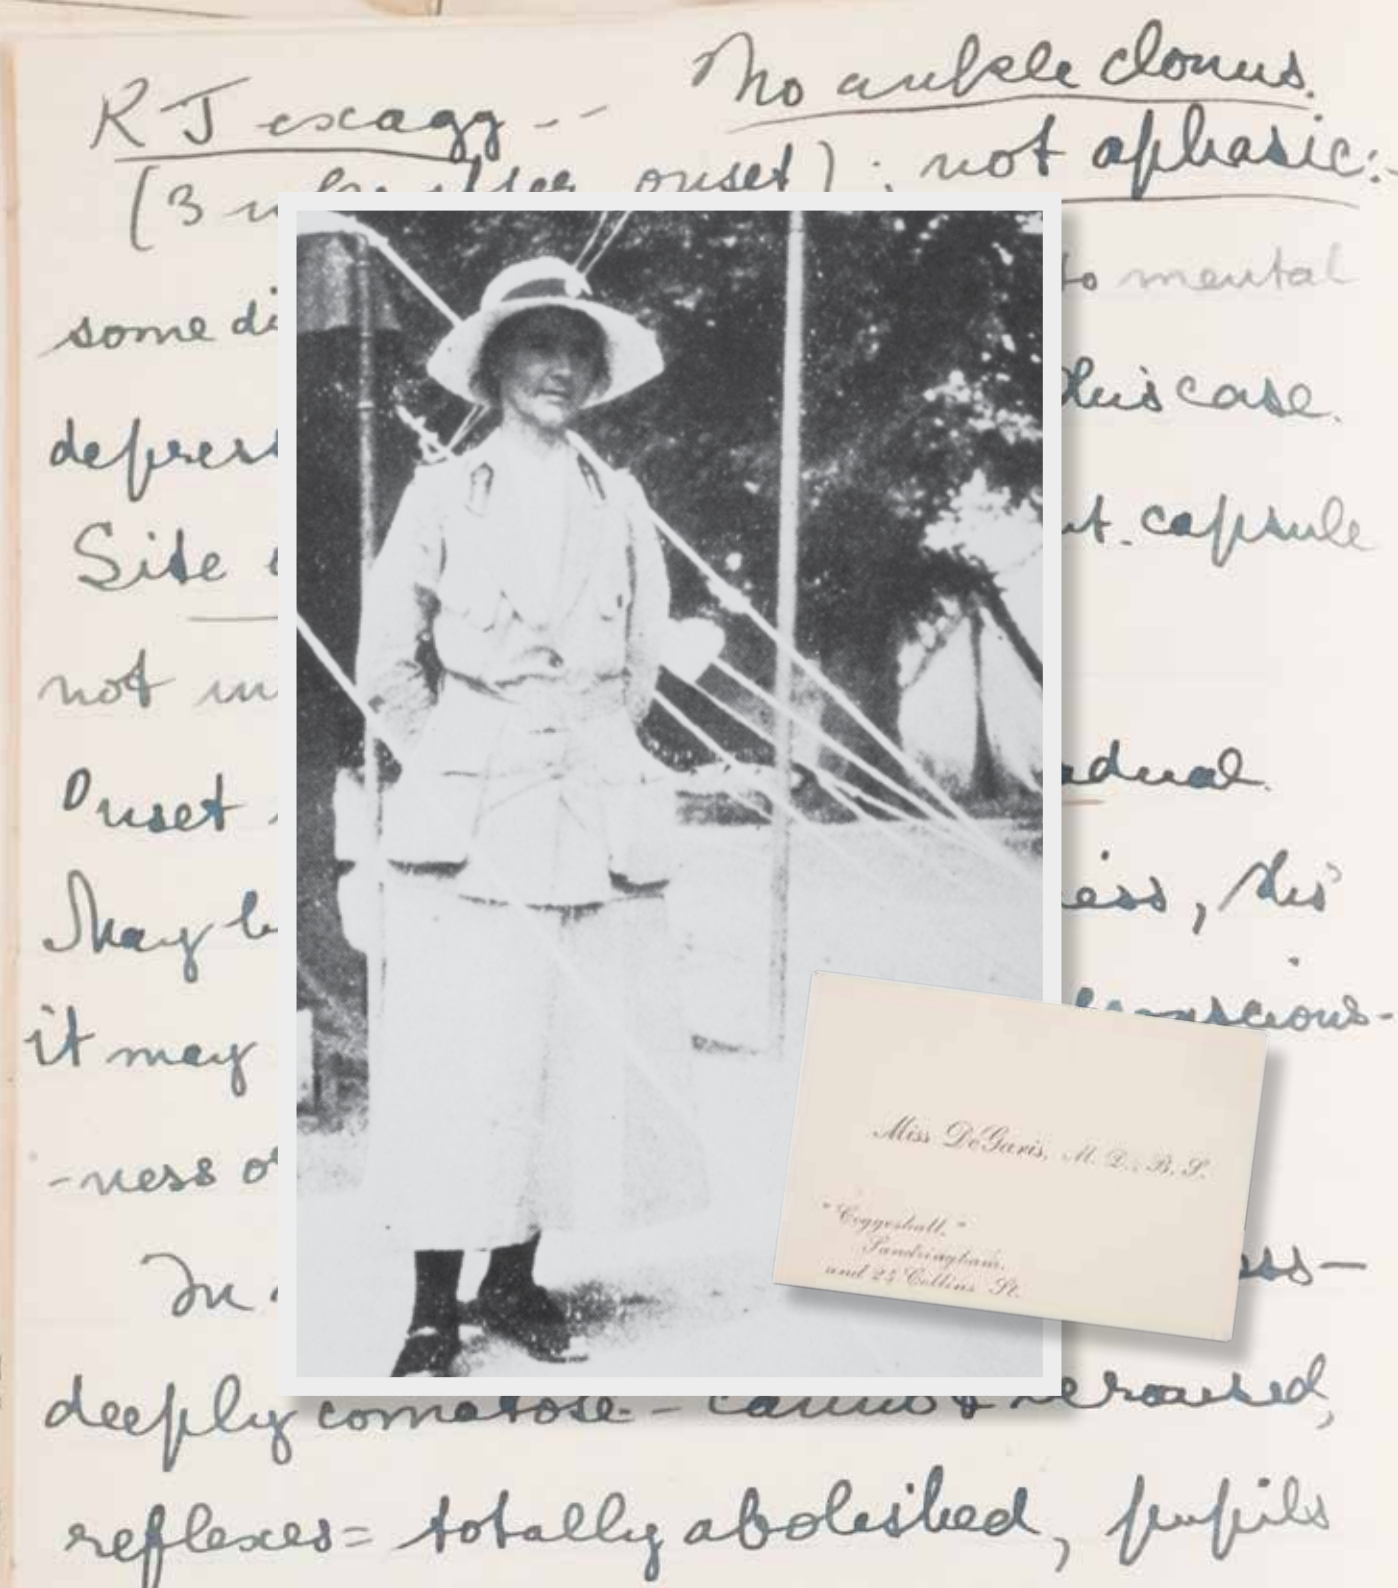 R J exagg -- No ankle clonus.
(3 after onset) ; not aphasic:-
some di to mental
depress this case.
Site nt. capsule
not in
Onset adual.
May b ess, this
it may conscious-
-ness o
In ess—
deeply comatose - cannot be roused,
reflexes = totally abolished, pupils
Miss DeGaris, M. D., B. S.
"Coggeshall,"
Sandringham.
and 24 Collins St.